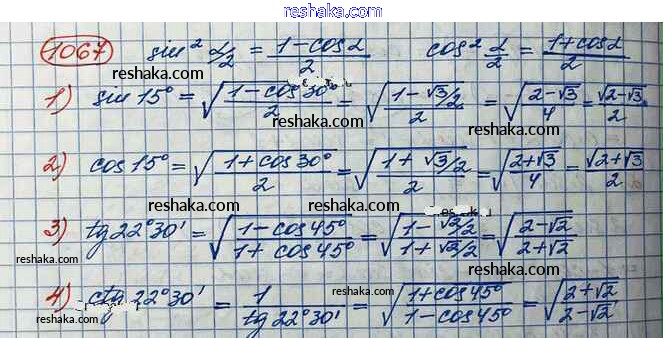 reshaka.com
1067 sin² α/2 = (1-cosα)/2 cos² α/2 = (1+cosα)/2
reshaka.com reshaka.com
1) sin 15° = √((1-cos 30°)/2) = √((1-√3/2)/2) = √((2-√3)/4) = √(2-√3)/2
reshaka.com reshaka.com
2) cos 15° = √((1+cos 30°)/2) = √((1+√3/2)/2) = √((2+√3)/4) = √(2+√3)/2
reshaka.com reshaka.com
3) tg 22°30' = √((1-cos 45°)/(1+cos 45°)) = √((1-√2/2)/(1+√2/2)) = √((2-√2)/(2+√2))
reshaka.com reshaka.com
4) ctg 22°30' = 1/(tg 22°30') = √((1+cos 45°)/(1-cos 45°)) = √((2+√2)/(2-√2))
reshaka.com reshaka.com
reshaka.com